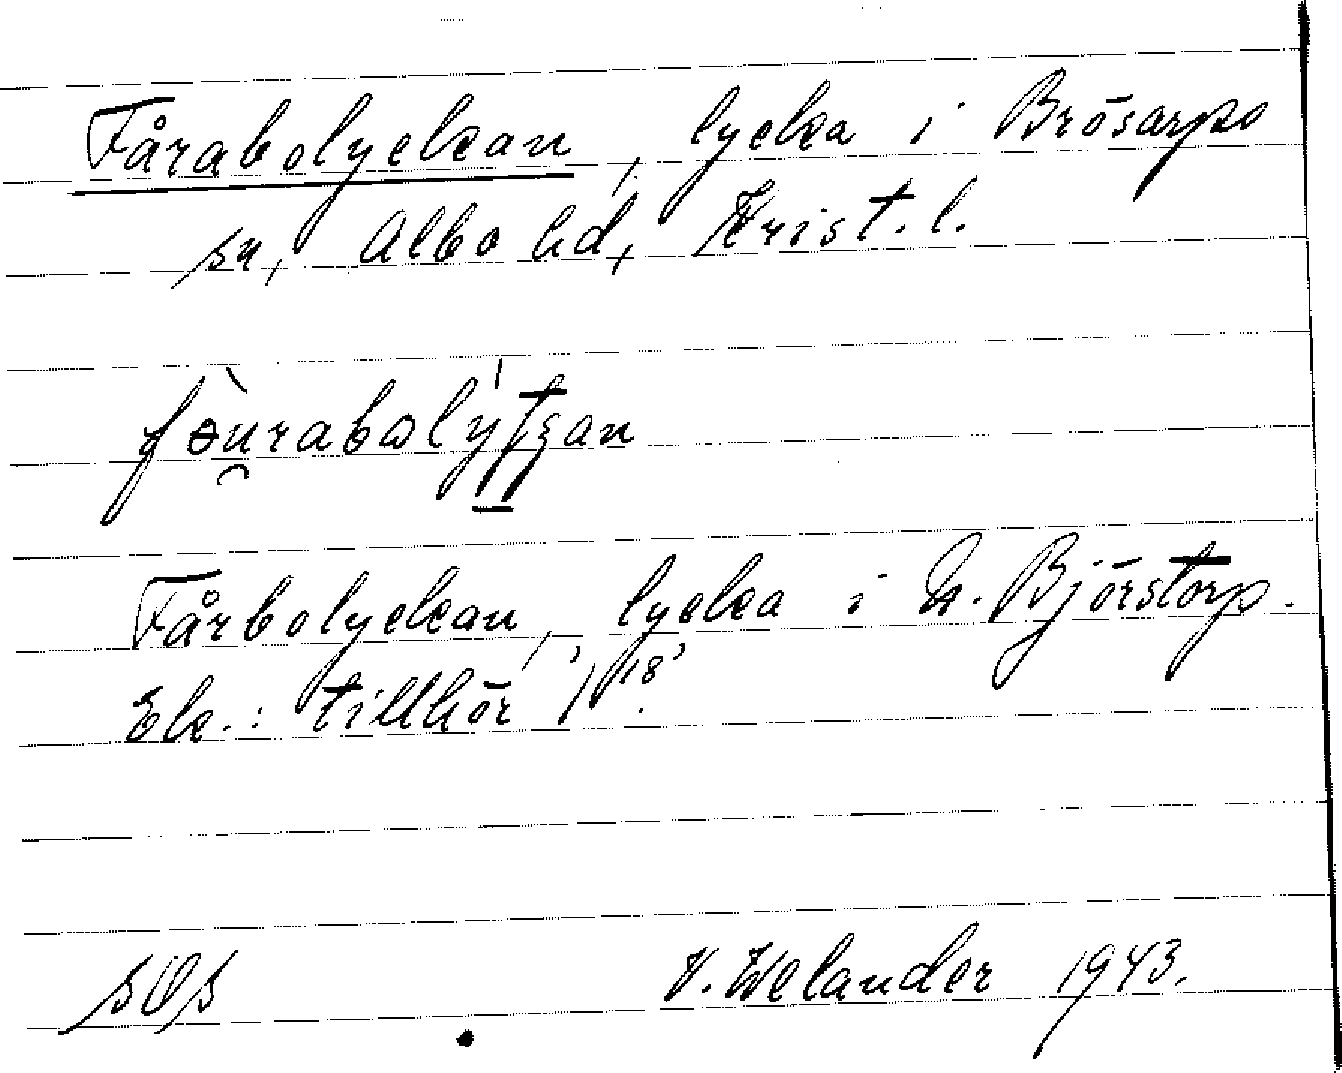 Fårabolyckan, lycka i Brösarps
sn, Albo hd, Krist. l.
Fårbolyckan, lycka i N. Björstorp.
Ek.: tillhör
SOS V. Welander 1943.